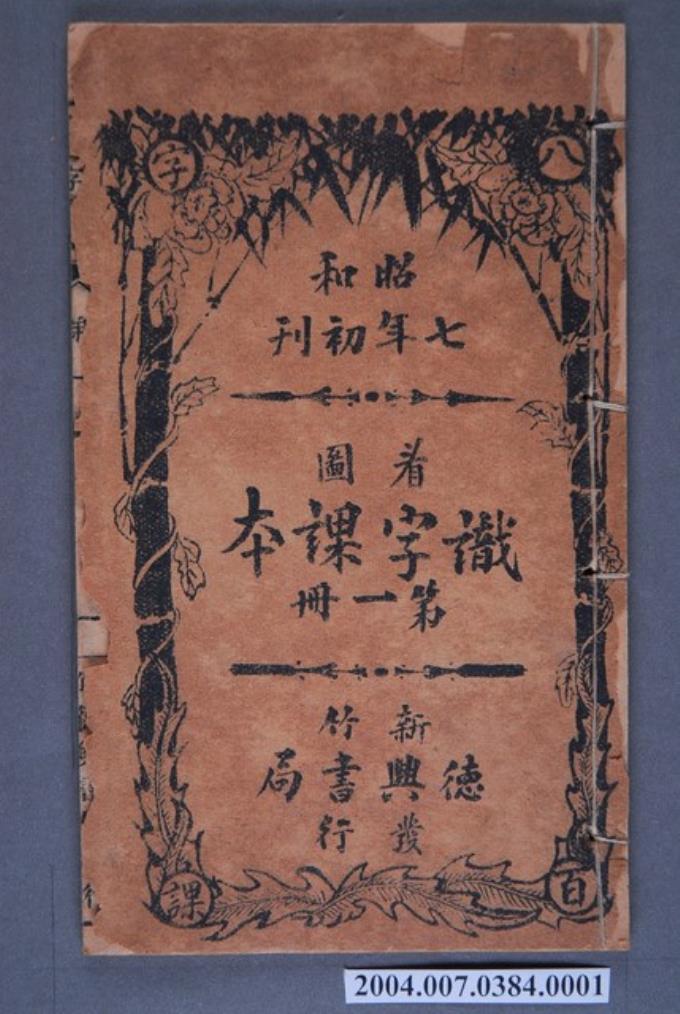 八百字課
昭和
七年初刊
看圖
識字課本
第一冊
新竹
德興書局
發行
2004.007.0384.0001